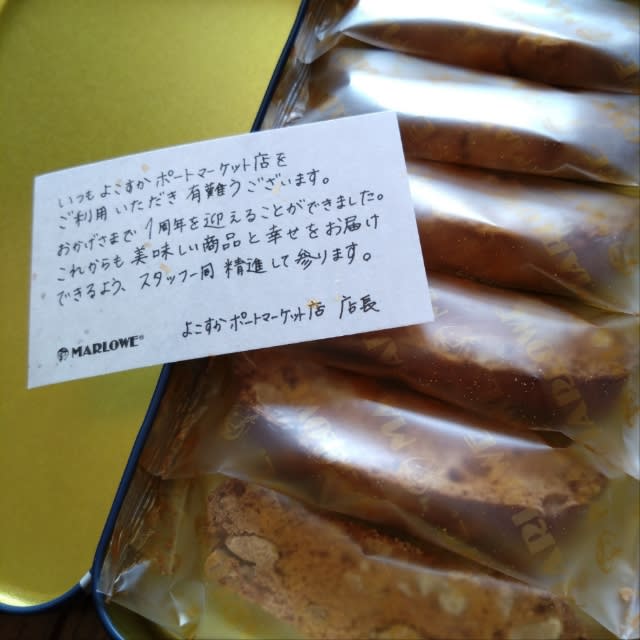 いつもよこすかポートマーケット店を
ご利用いただき有難うございます。
おかげさまで1周年を迎えることができました。
これからも美味しい商品と幸せをお届け
できるよう、スタッフ一同 精進して参ります。
よこすかポートマーケット店 店長
MARLOWE®